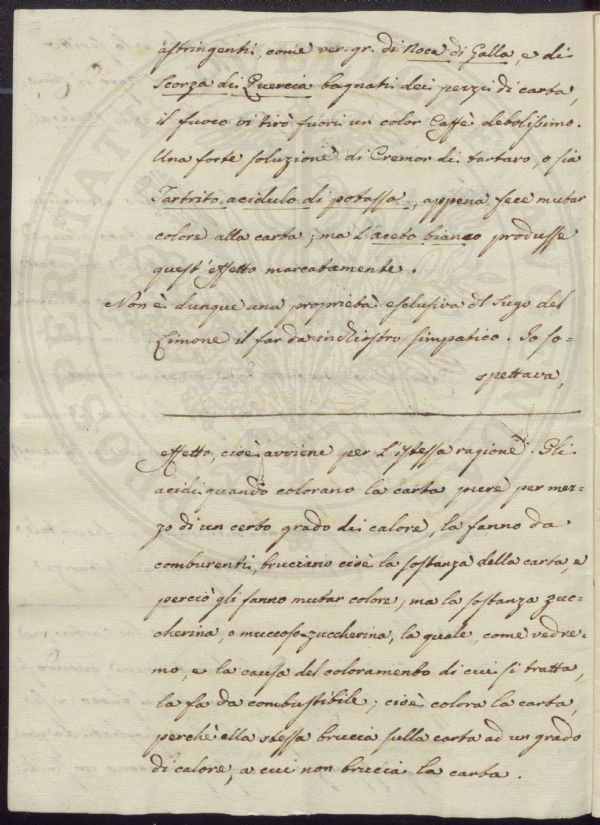 astringenti, come ver. gr. di Noce di Galla, e di
Scorza di Quercia bagnati dei pezzi di carta,
il fuoco vi tirò fuori un color Caffè debolissimo.
Una forte soluzione di Cremor di tartaro, o sia
Tartrito acidulo di potassa, appena fece mutar
colore alla carta; ma l'aceto bianco produsse
quest'effetto marcatamente.
Non è dunque una proprietà esclusiva dl Sugo del
Limone il far da inchiostro simpatico. Io so-
spettava,
effetto, cioè avviene per l'istessa ragione. Gli
acidi quando colorano la carta pure per mez-
zo di un certo grado di calore, la fanno da
comburenti, bruciano cioè la sostanza della carta, e
perciò gli fanno mutar colore; ma la sostanza zuc-
cherina, o muccoso-zuccherina, la quale, come vedre-
mo, e la causa del coloramento di cui si tratta,
la fa da combustibile; cioè colora la carta,
perchè ella stessa bruccia sulla carta ad un grado
di calore, a cui non bruccia la carta.